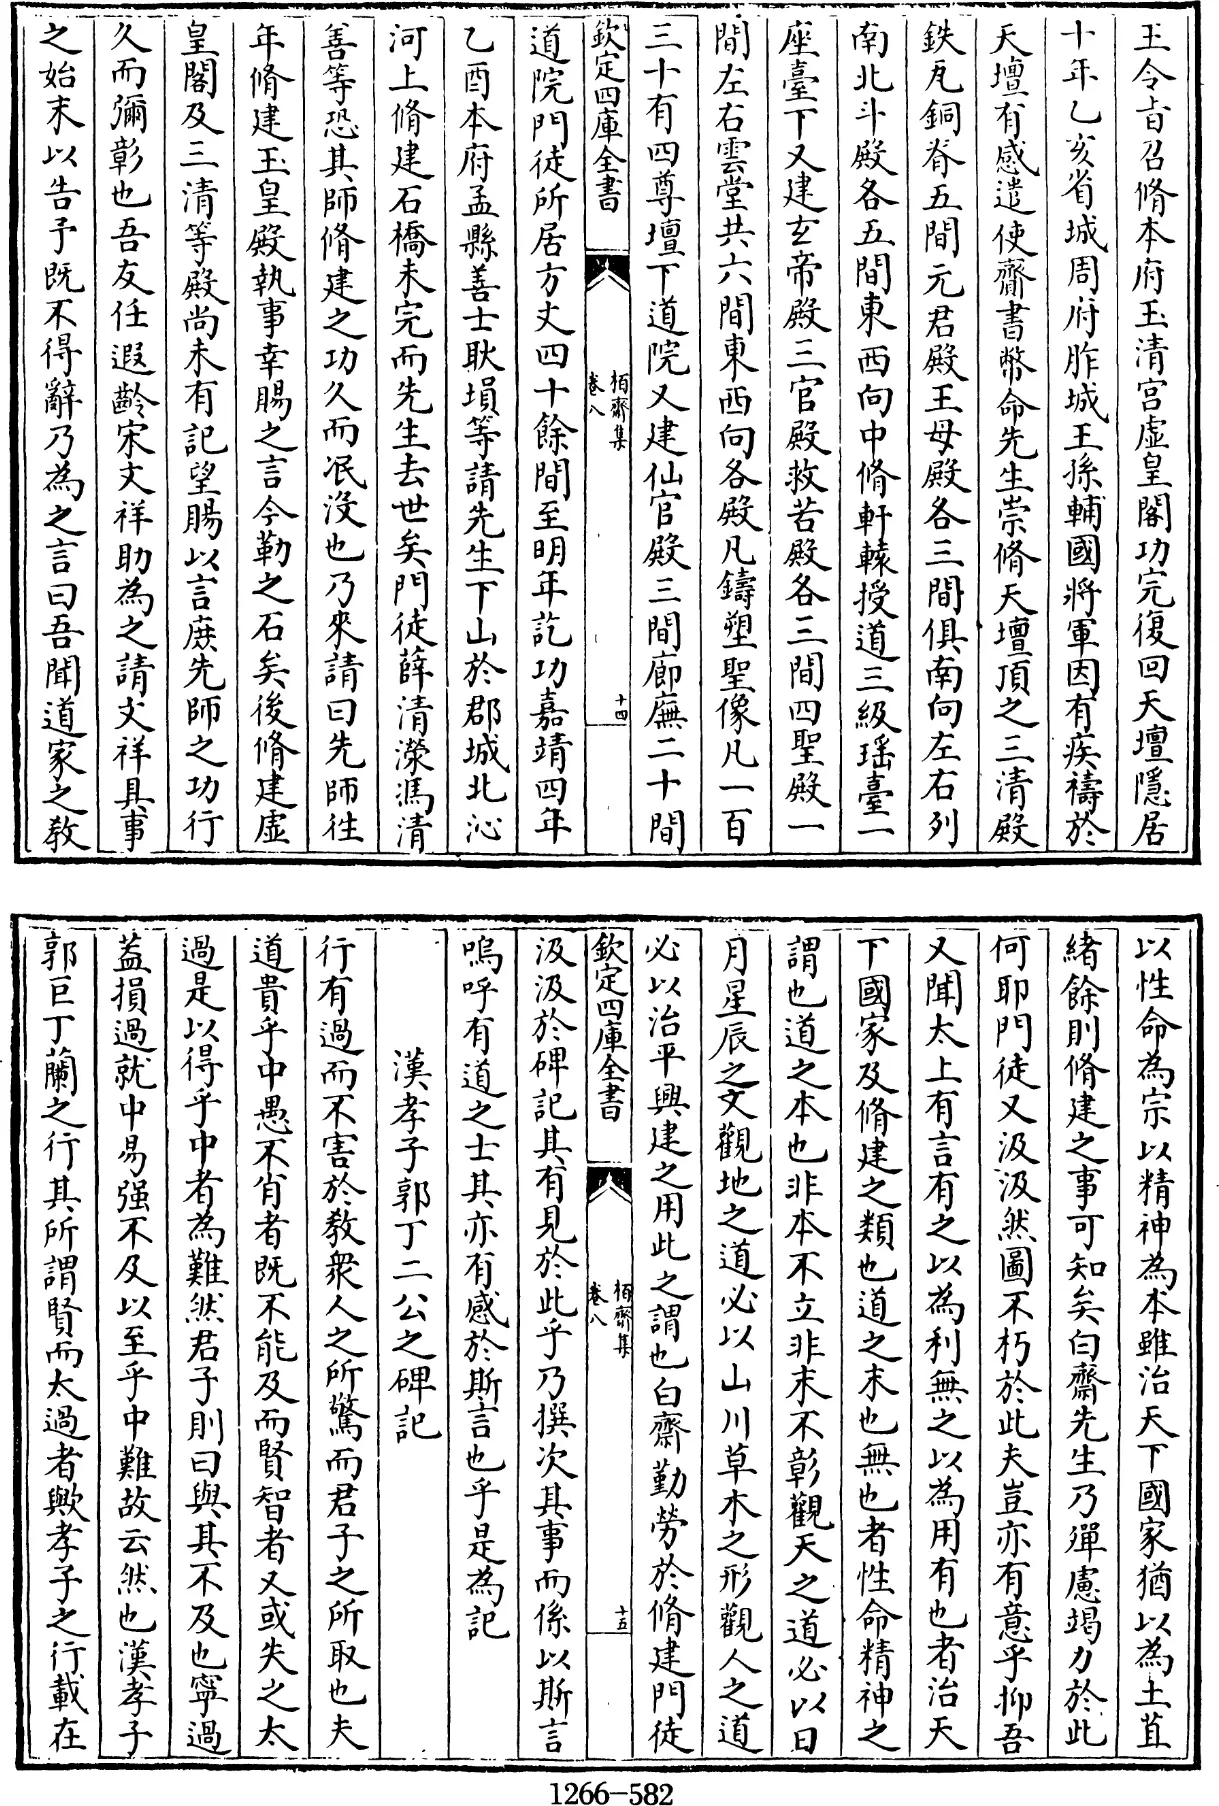 王令旨召脩本府玉清宫虚皇閣功完復回天壇隱居
十年乙亥省城周府胙城王孫輔國將軍因有疾禱於
天壇有感遣使齎書幣命先生崇脩天壇頂之三清殿
鉄瓦銅脊五間元君殿王母殿各三間俱南向左右列
南北斗殿各五間東西向中脩軒轅授道三級瑶臺一
座臺下又建玄帝殿三官殿救苦殿各三間四聖殿一
間左右雲堂共六間東西向各殿凡鑄塑聖像凡一百
三十有四尊壇下道院又建仙官殿三間廊廡二十間
欽定四庫全書
栢齋集
卷八
十四
道院門徒所居方丈四十餘間至明年訖功嘉靖四年
乙酉本府孟縣善士耿塤等請先生下山於郡城北沁
河上脩建石橋未完而先生去世矣門徒薛清濚馮清
善等恐其師脩建之功久而泯沒也乃來請曰先師徃
年脩建玉皇殿執事幸賜之言今勒之石矣後脩建虚
皇閣及三清等殿尚未有記望賜以言庶先師之功行
久而彌彰也吾友任遐齡宋文祥助為之請文祥具事
之始末以告予既不得辭乃為之言曰吾聞道家之教
以性命為宗以精神為本雖治天下國家猶以為土苴
緒餘則脩建之事可知矣白齋先生乃殫慮竭力於此
何耶門徒又汲汲然圖不朽於此夫豈亦有意乎抑吾
又聞太上有言有之以為利無之以為用有也者治天
下國家及脩建之類也道之末也無也者性命精神之
謂也道之本也非本不立非末不彰觀天之道必以日
月星辰之文觀地之道必以山川草木之形觀人之道
必以治平興建之用此之謂也白齋勤勞於脩建門徒
欽定四庫全書
栢齋集
卷八
十五
汲汲於碑記其有見於此乎乃撰次其事而係以斯言
嗚呼有道之士其亦有感於斯言也乎是為記
漢孝子郭丁二公之碑記
行有過而不害於教衆人之所驚而君子之所取也夫
道貴乎中愚不肖者既不能及而賢智者又或失之太
過是以得乎中者為難然君子則曰與其不及也寧過
葢損過就中易强不及以至乎中難故云然也漢孝子
郭巨丁蘭之行其所謂賢而太過者歟孝子之行載在
1266-582